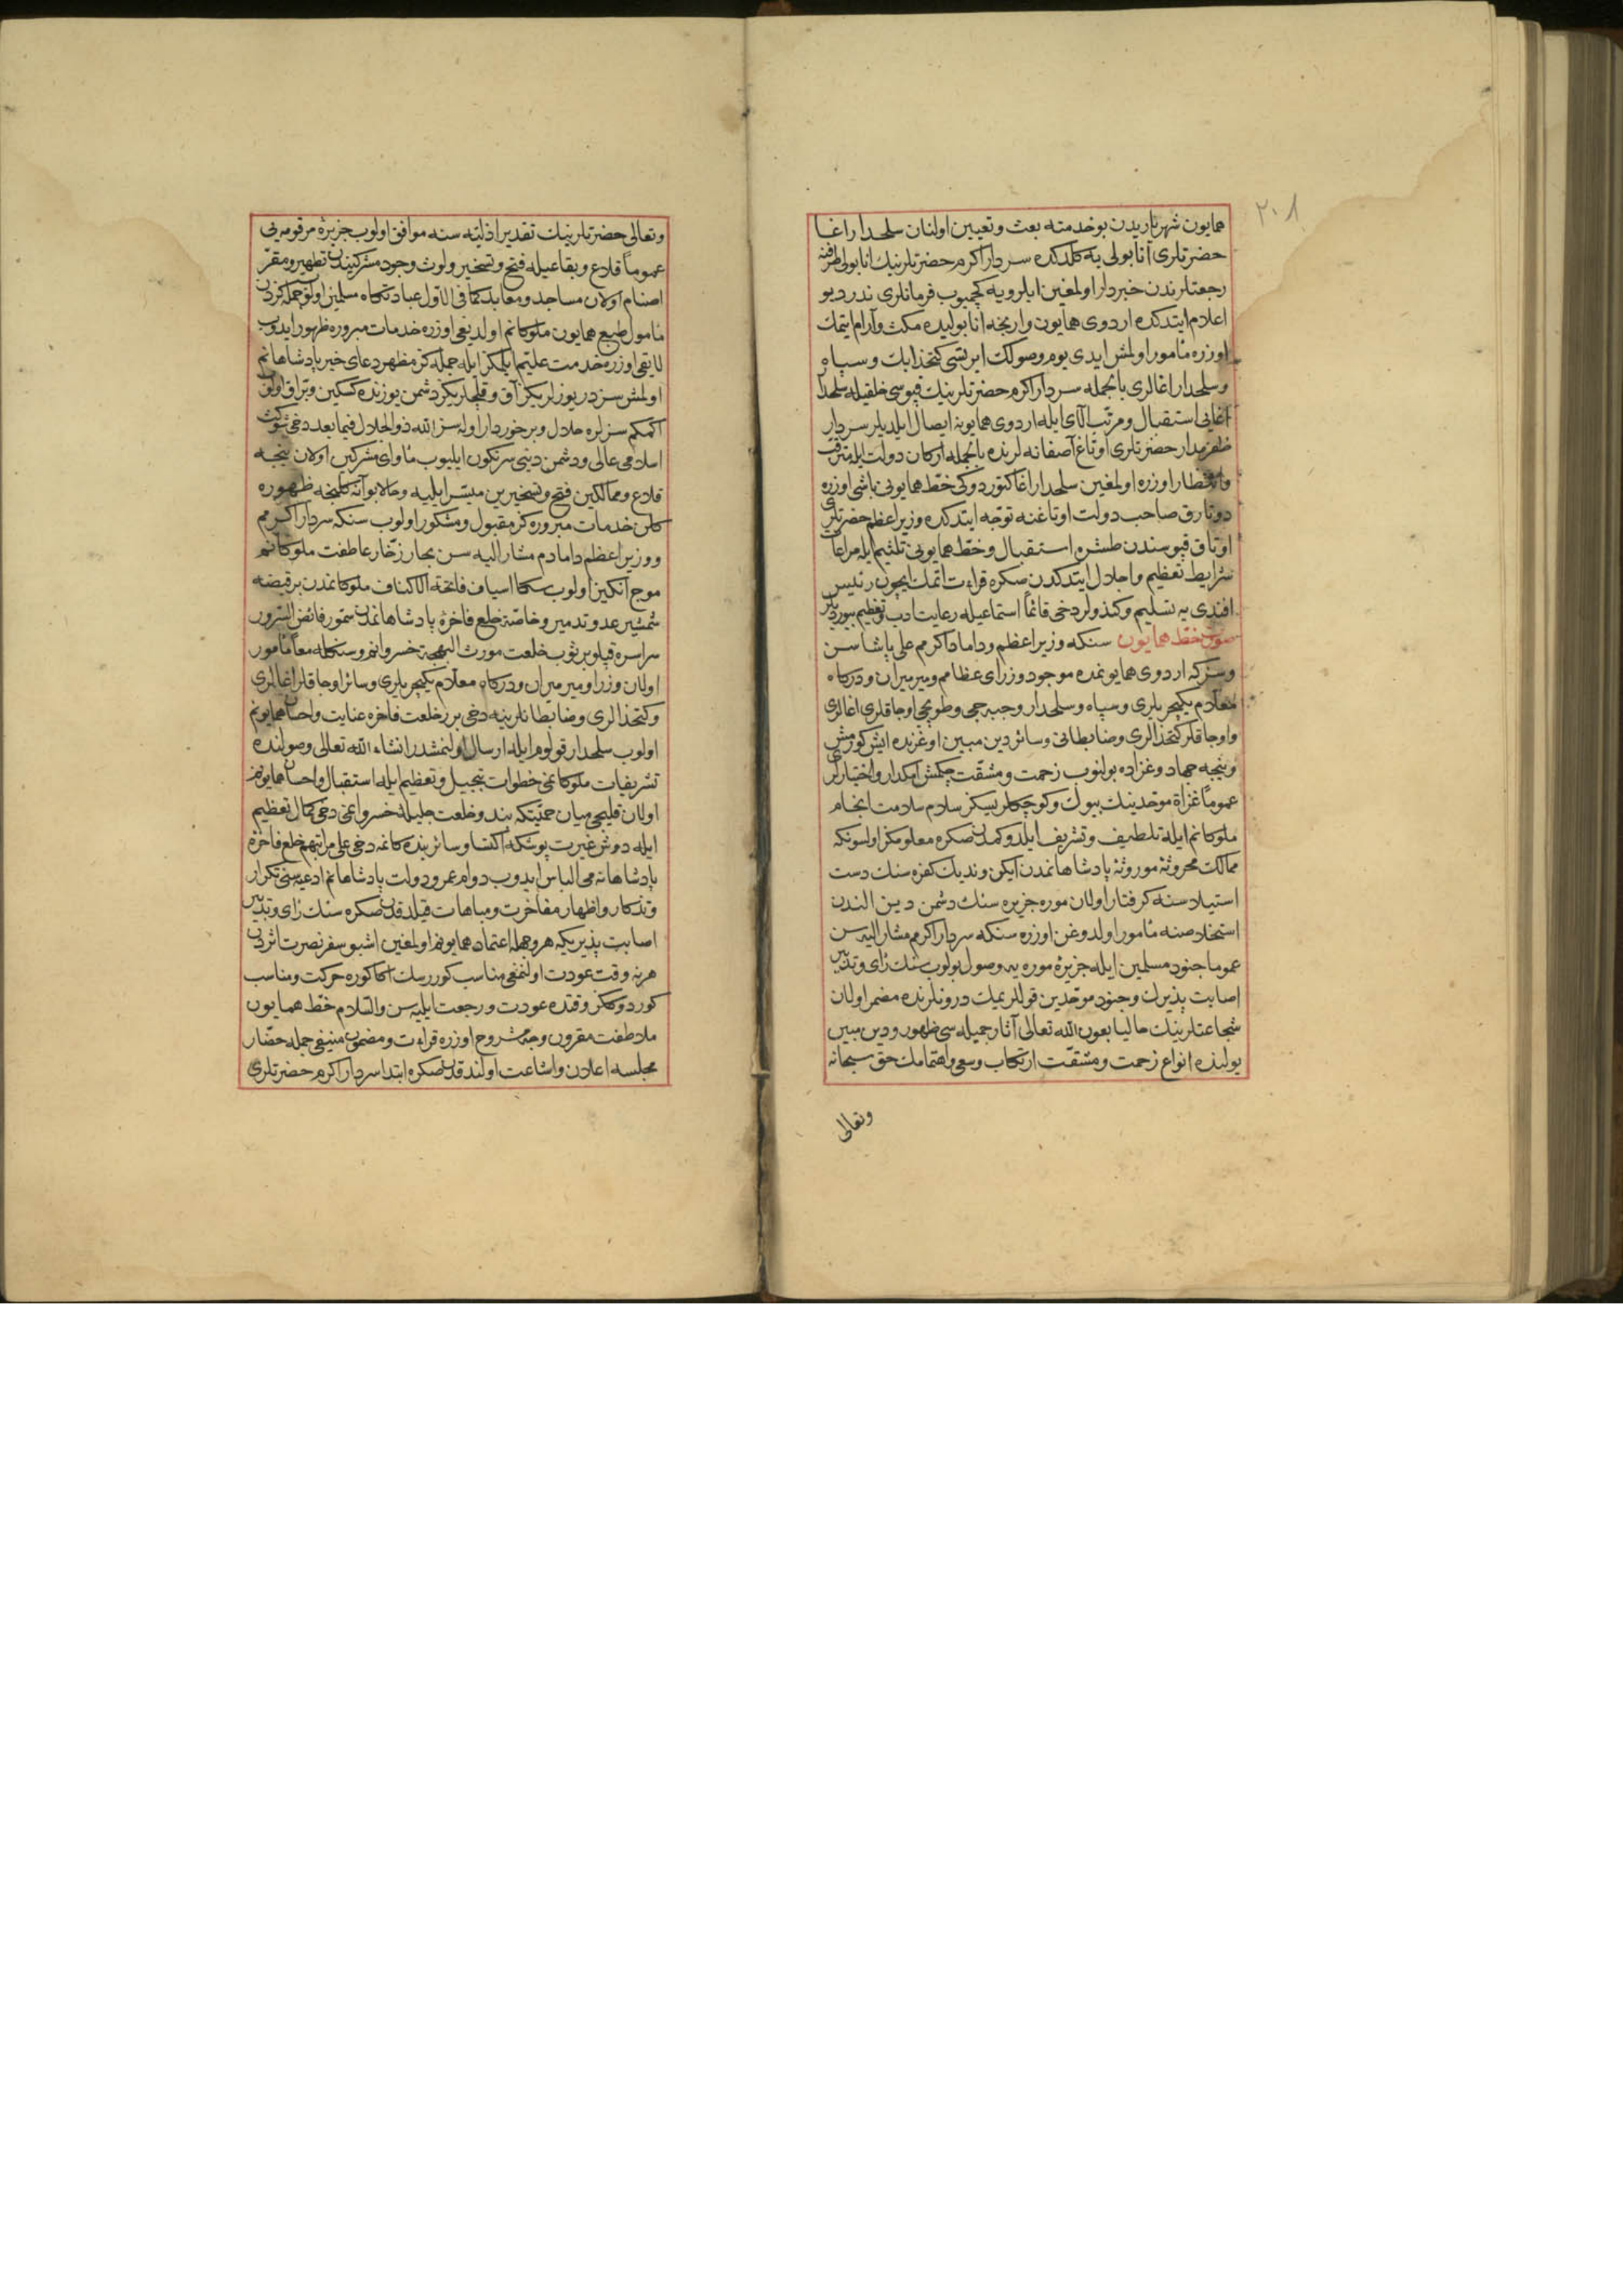 ٢٠٨
همايون شهرياريدن بو خدمته بعث وتعيين اولنان سلحدار اغا
حضرتلرى آنابولى يه كلدكده سردار اكرم حضرتلرينك انابولى طرفنه
رجعتلرندن خبردار اولمغين ايلرويه كچميوب فرمانلرى ندر ديو
اعلام ايتدكده اردوى همايون وارنجه انابوليده مكث وآرام ايتمك
اوزره مأمور اولمش ايدى يوم وصولك ايرتسى كتخدا بك وسپاه
وسلحدار اغالرى بالجمله سردار اكرم حضرتلرينك قپوسى خلقيله سلحدار
اغايى استقبال ومرتب آلاى ايله اردوى همايونه ايصال ايلديلر سردار
ظفرمدار حضرتلرى اوتاغ آصفانه لرنده بالجمله اركان دولت ايله مترقب
وانتظار اوزره اولمغين سلحدار اغا كتوردوكى خط همايونى باشى اوزره
دوتارق صاحب دولت اوتاغنه توجه ايتدكده وزير اعظم حضرتلرى
اوتاق قپوسندن طشره استقبال وخط همايونى تلثيم ايله مراعات
شرايط تعظيم واجلال ايتدكدن صكره قراءت اتمك ايچون رئيس
افندى يه تسليم وكندولر دخى قائماً استماعيله رعايت ادب وتعظيم بيورديلر
صورت خط همايون سنكه وزير اعظم وداماد اكرمم على پاشا سن
وسزكه اردوى همايونمده موجود وزراى عظامم وميرميران ودركاه
معلام يكيچريلرى وسپاه وسلحدار وجبه جى وطوپجى اوجاقلرى اغالرى
واوجاقلر كتخدالرى وضابطانى وسائر دين مبين اوغرنده ايش كورمش
ونيجه جهاد وغزاده بولنوب زحمت ومشقت چكمش امكدار واختيارلرى
عموماً غزاة موحدينك بيوك وكوچكلريسكز سلام سلامت انجام
ملوكانم ايله تلطيف وتشريف ايلدوكمدن صكره معلومكز اولسونكه
ممالك محروثه موروثه پادشاهانمدن ايكن ونديك كفره سنك دست
استيلاسنه كرفتار اولان موره جزيره سنك دشمن دين الندن
استخلاصنه مأمور اولدوغن اوزره سنكه سردار اكرم مشار اليه سن
عموما جنود مسلمين ايله جزيرۀ موره يه وصول بولوب سنك رأى وتدبير
اصابت پذيرك وجنود موحدين قوللريمك درونلرنده مضمر اولان
شجاعتلرينك حاليا بعون الله تعالى آثار جميله سى ظهور ودين مبين
يولنده انواع زحمت ومشقت ارتكاب وسعى واهتمامك حق سبحانه
وتعالى
وتعالى حضرتلرينك تقدير ازليته سنه موافق اولوب جزيرۀ مرقومه يى
عموماً قلاع وبقاعيله فتح وتسخير ولوث وجود مشركيندن تطهير ومقر
اصنام اولان مساجد ومعابد كما فى الاول عبادتكاه مسلمين اولوب جمله كزدن
مأمول طبع همايون ملوكانم اولديغى اوزره خدمات مبروره ظهور ايدوب
لايقى اوزره خدمت عليتم ايلدكز ايله جمله كز مظهر دعاى خير پادشاهانم
اولمش سزدر يوزلريكز آق وقلجلريكز دشمن يوزنده كسكين وبراق اولوب
اتمكم سزلره حلال وبرخوردار اوله سز الله ذو الجلال فيما بعد دخى شوكت
اسلامى عالى ودشمن دينى سرنكون ايليوب مأواى مشركين اولان نيجه
قلاع وممالكين فتح وتسخيرين ميسر ايليه وحالا بو آنه كلنجه ظهوره
كلن خدمات مبروره كز مقبول ومشكور اولوب سنكه سردار اكرمم
ووزير اعظم دامادم مشار اليه سن بحار زخار عاطفت ملوكانم
موج انكيز اولوب سكا اسياف فاتحة الاكناف ملوكانمدن بر قبضه
شمشير عدو تدمير وخاصة خلع فاخرۀ پادشاهانمدن سمور فائض السرور
سراسره قپلو بر ثوب خلعت مورث البهجة خسروانم وسنكله معاً مأمور
اولان وزرا وميرميران ودركاه معلام يكيچريلرى وسائر اوجاقلر اغالرى
وكتخدالرى وضابطانلرينه دخى برر خلعت فاخره عنايت واحسان همايونم
اولوب سلحدار قولوم ايله ارسال اولنمشدر انشاء الله تعالى وصولنده
تشريفات ملوكانمى خطوات تبجيل وتعظيم ايله استقبال واحسان همايونم
اولان قليجى ميان حميتكه بند وخلعت جليلۀ خسروانمى دخى كمال تعظيم
ايله دوش غيرت پوشكه اكتسا وسائر بندكانمه دخى على مراتبهم خلع فاخرۀ
پادشاهانه مى الباس ايدوب دوام عمر ودولت پادشاهانم ادعيه سنى تكرار
وتذكار واظهار مفاخرت ومباهات قيلدقدن صكره سنك رأى وتدبير
اصابت پذيريكه هر وجهله اعتماد همايونم اولمغين اشبو سفر نصرت اثردن
هر نه وقت عودت اولنمغى مناسب كوررسك اكا كوره حركت ومناسب
كوردوككز وقتده عودت ورجعت ايليه سن والسلام خط همايون
ملاطفت مقرون وجه مشروح اوزره قراءت ومضمون منيفى جمله حضار
مجلسه اعلان واشاعت اولندقدن صكره ابتدا سردار اكرم حضرتلرى